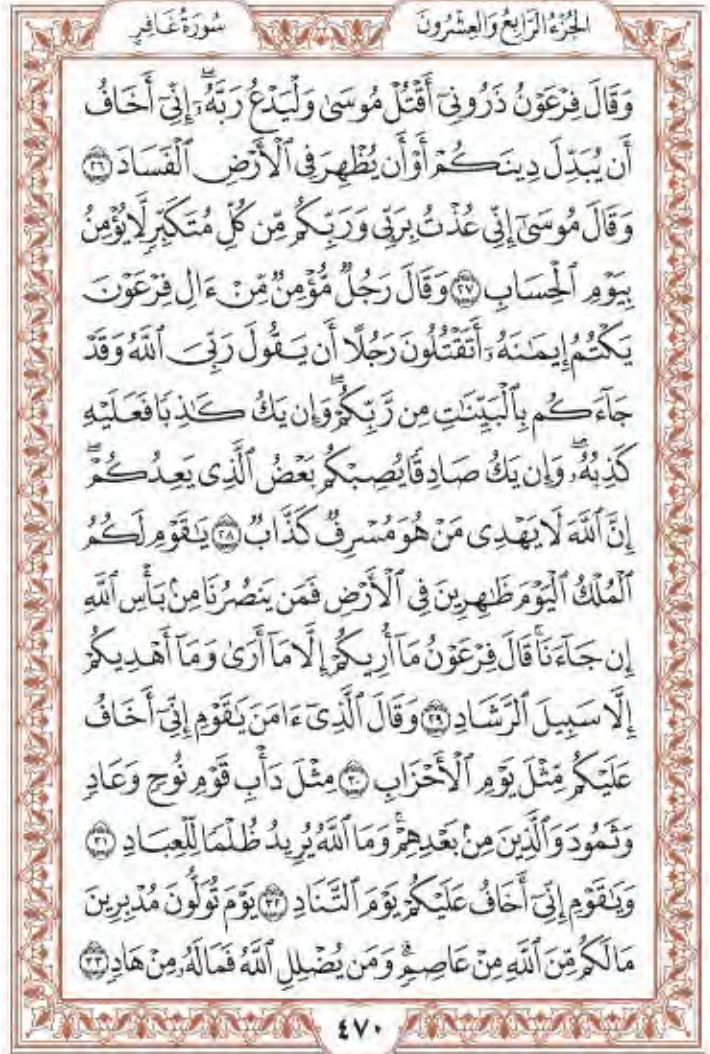 الجُزْءُ الرَّابِعُ وَالعِشْرُونَ سُورَةُ غَافِرٍ
وَقَالَ فِرْعَوْنُ ذَرُونِيٓ أَقْتُلْ مُوسَىٰ وَلْيَدْعُ رَبَّهُۥٓۖ إِنِّيٓ أَخَافُ
أَن يُبَدِّلَ دِينَكُمْ أَوْ أَن يُظْهِرَ فِي ٱلْأَرْضِ ٱلْفَسَادَ ٢٦
وَقَالَ مُوسَىٰٓ إِنِّي عُذْتُ بِرَبِّي وَرَبِّكُم مِّن كُلِّ مُتَكَبِّرٍ لَّا يُؤْمِنُ
بِيَوْمِ ٱلْحِسَابِ ٢٧ وَقَالَ رَجُلٌ مُّؤْمِنٌ مِّنْ ءَالِ فِرْعَوْنَ
يَكْتُمُ إِيمَٰنَهُۥٓ أَتَقْتُلُونَ رَجُلًا أَن يَقُولَ رَبِّيَ ٱللَّهُ وَقَدْ
جَآءَكُم بِٱلْبَيِّنَٰتِ مِن رَّبِّكُمْۖ وَإِن يَكُ كَٰذِبًا فَعَلَيْهِ
كَذِبُهُۥۖ وَإِن يَكُ صَادِقًا يُصِبْكُم بَعْضُ ٱلَّذِي يَعِدُكُمْۖ
إِنَّ ٱللَّهَ لَا يَهْدِي مَنْ هُوَ مُسْرِفٌ كَذَّابٌ ٢٨ يَٰقَوْمِ لَكُمُ
ٱلْمُلْكُ ٱلْيَوْمَ ظَٰهِرِينَ فِي ٱلْأَرْضِ فَمَن يَنصُرُنَا مِنۢ بَأْسِ ٱللَّهِ
إِن جَآءَنَاۚ قَالَ فِرْعَوْنُ مَآ أُرِيكُمْ إِلَّا مَآ أَرَىٰ وَمَآ أَهْدِيكُمْ
إِلَّا سَبِيلَ ٱلرَّشَادِ ٢٩ وَقَالَ ٱلَّذِيٓ ءَامَنَ يَٰقَوْمِ إِنِّيٓ أَخَافُ
عَلَيْكُم مِّثْلَ يَوْمِ ٱلْأَحْزَابِ ٣٠ مِثْلَ دَأْبِ قَوْمِ نُوحٍ وَعَادٍ
وَثَمُودَ وَٱلَّذِينَ مِنۢ بَعْدِهِمْۚ وَمَا ٱللَّهُ يُرِيدُ ظُلْمًا لِّلْعِبَادِ ٣١
وَيَٰقَوْمِ إِنِّيٓ أَخَافُ عَلَيْكُمْ يَوْمَ ٱلتَّنَادِ ٣٢ يَوْمَ تُوَلُّونَ مُدْبِرِينَ
مَا لَكُم مِّنَ ٱللَّهِ مِنْ عَاصِمٍۗ وَمَن يُضْلِلِ ٱللَّهُ فَمَا لَهُۥ مِنْ هَادٍ ٣٣
٤٧٠